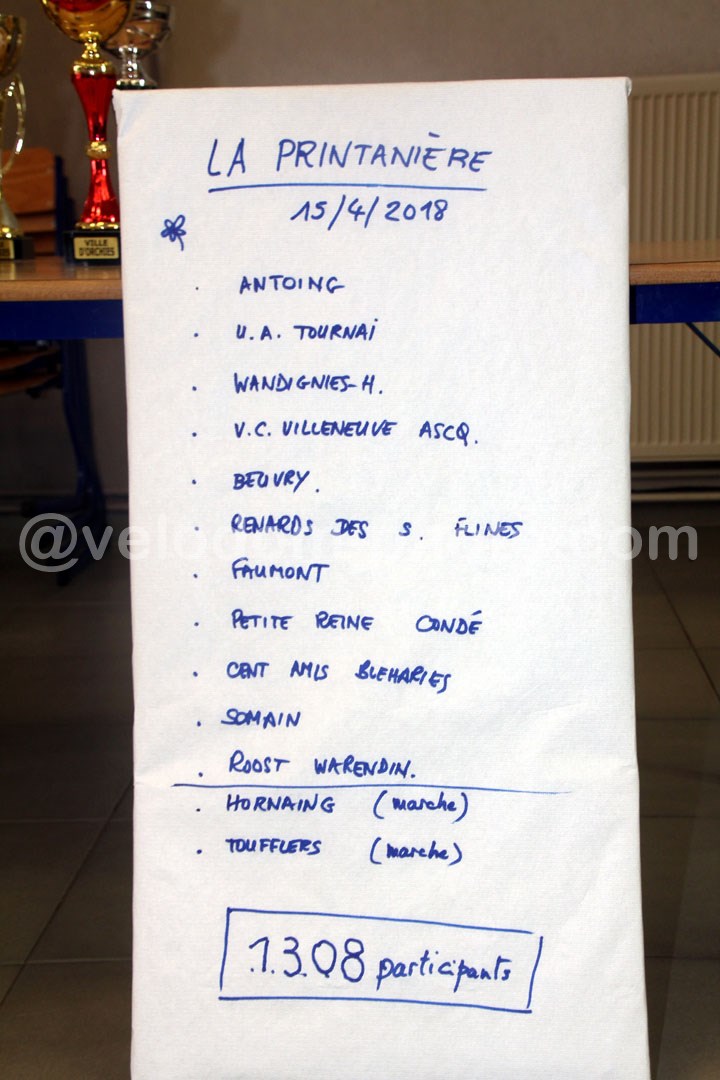 LA PRINTANIÈRE
15/4/2018
VILLE
D'ORCHIES
. ANTOING
. U.A. TOURNAI
. WANDIGNIES-H.
. V.C. VILLENEUVE ASCQ.
. BEUVRY.
. RENARDS DES S. FLINES
. FAUMONT
. PETITE REINE CONDÉ
. CENT AMIS BLEHARIES
. SOMAIN
. ROOST WARENDIN.
. HORNAING (marche)
. TOUFFLERS (marche)
.1.3.08 participants